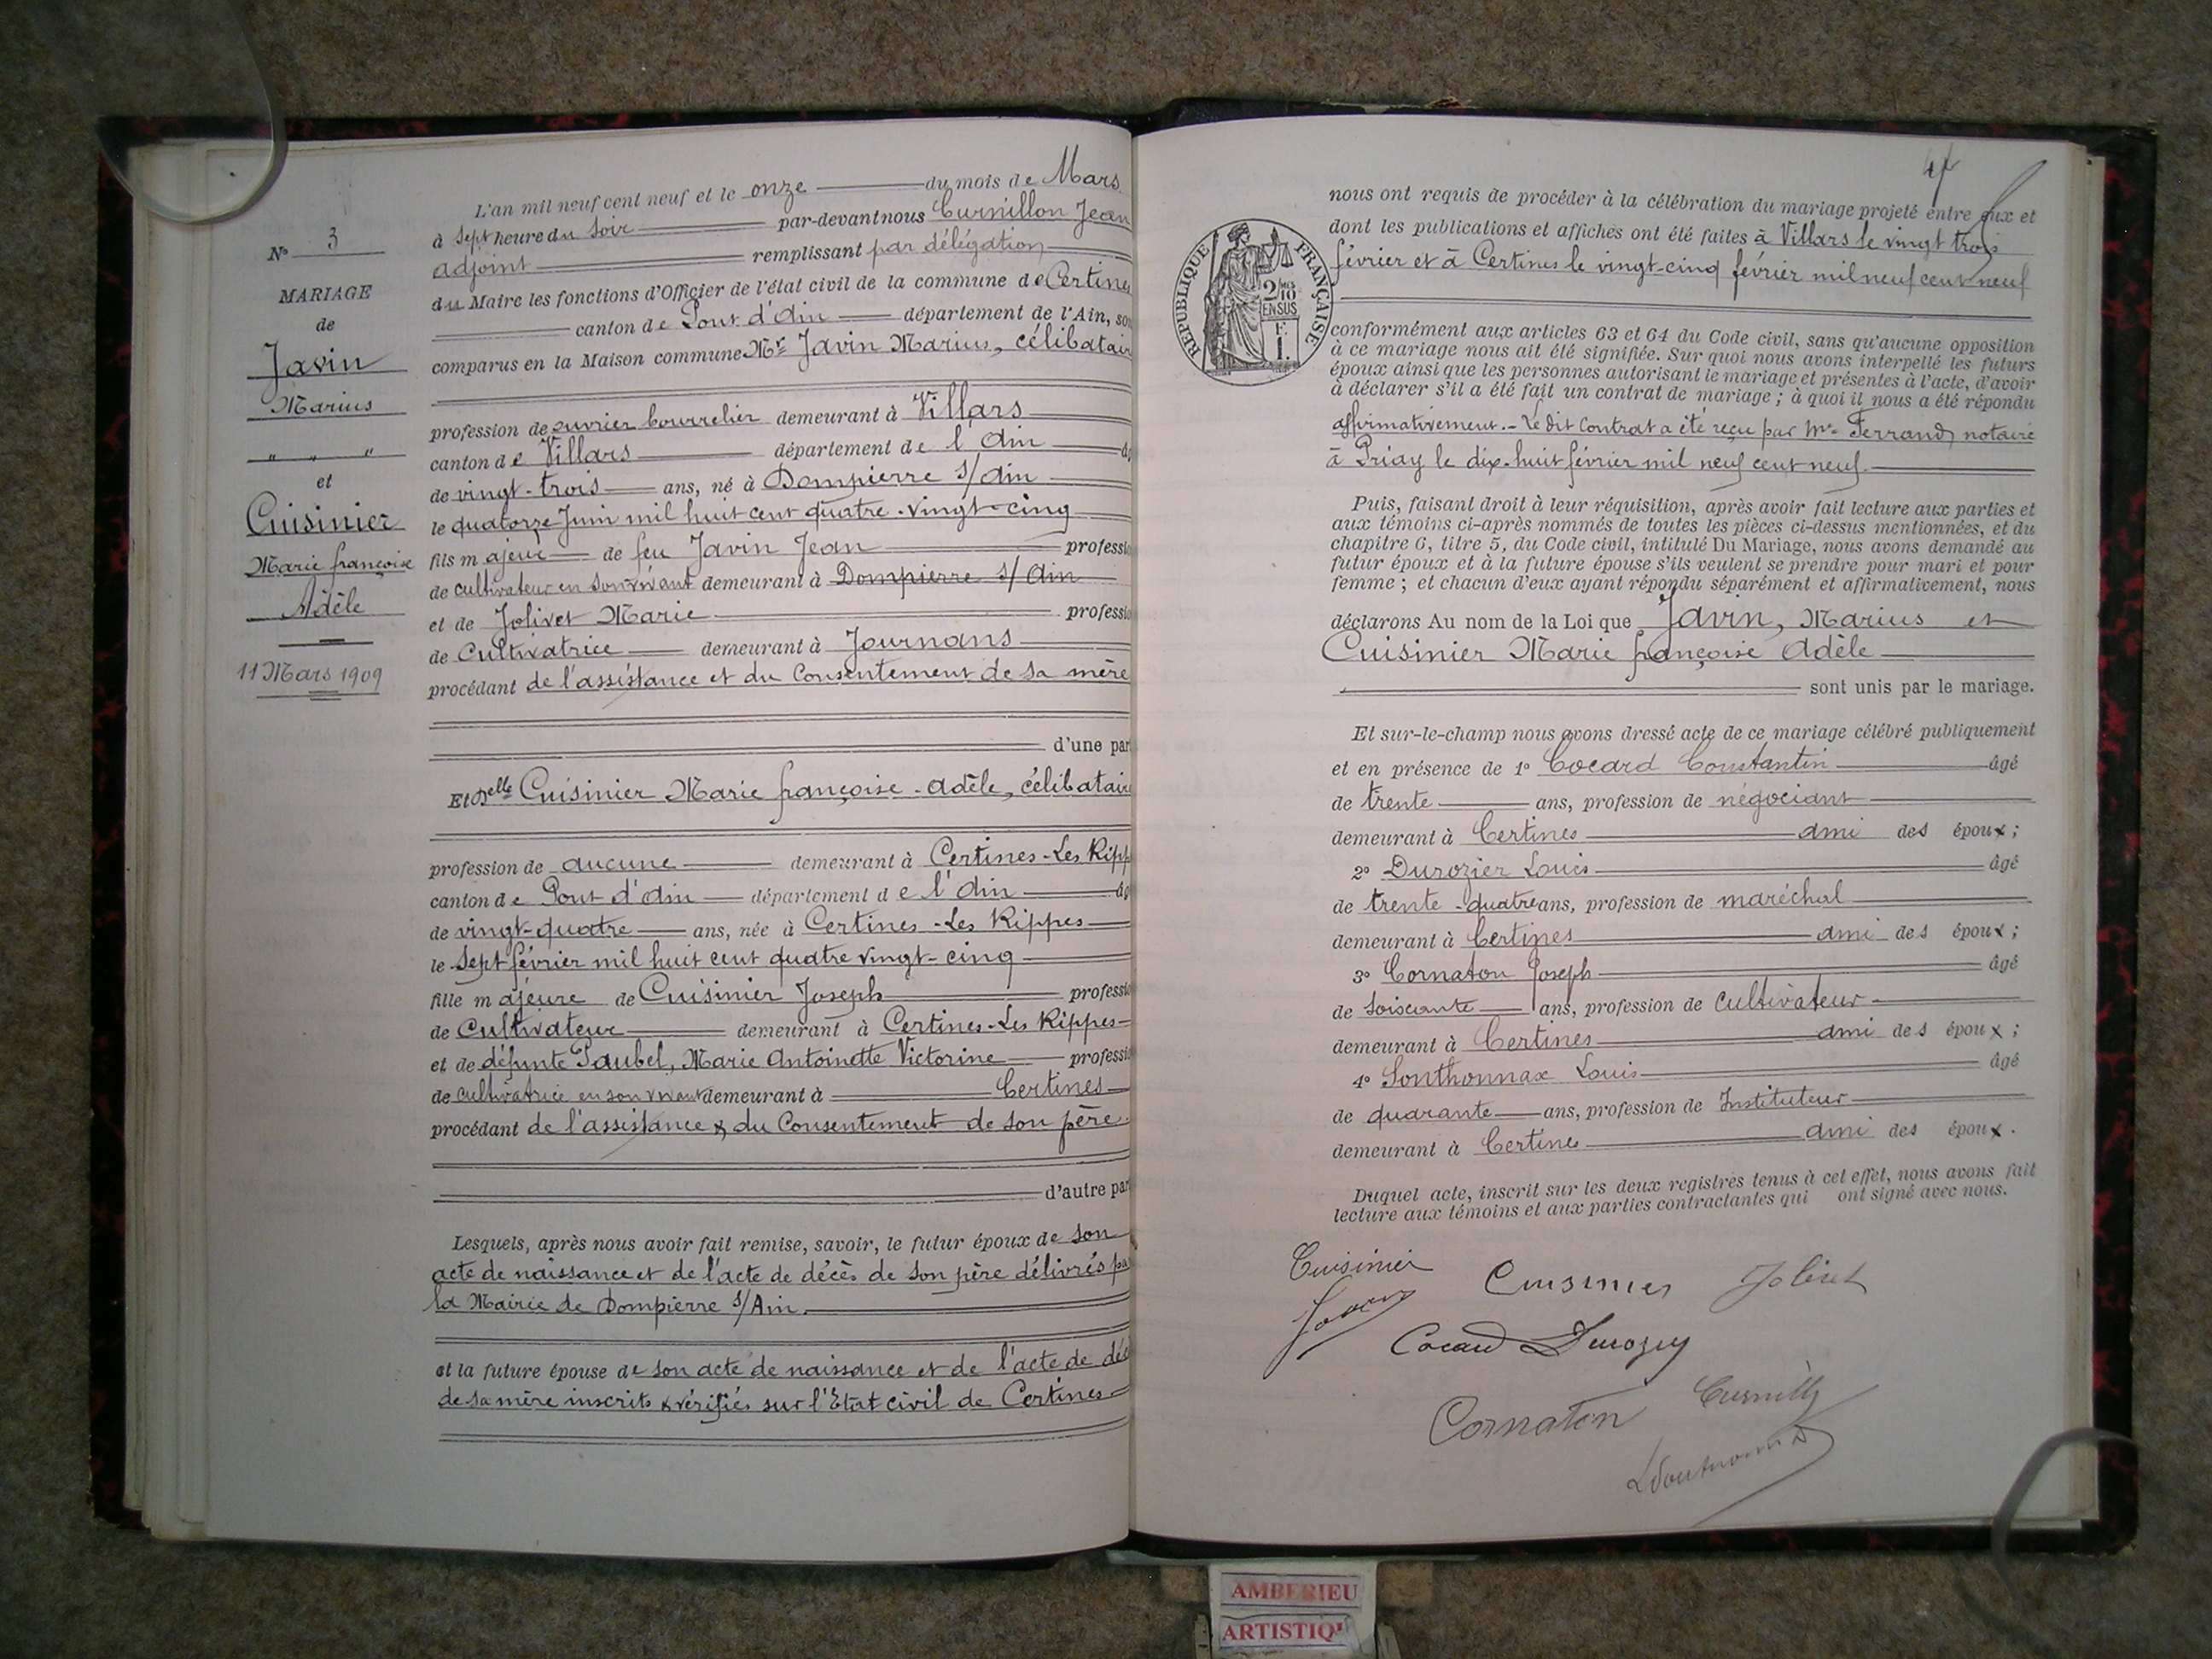 L'an mil neuf cent neuf et le onze du mois de Mars
à Sept heure du Soir par-devant nous Curnillon Jean
adjoint remplissant par délégation
du Maire les fonctions d'Officier de l'état civil de la commune de Certines
canton de Pont d'Ain département de l'Ain, son
comparus en la Maison commune Mr Javin Marius, célibatair
profession de ouvrier bourrelier demeurant à Villars
canton de Villars département de l'Ain âg
de vingt-trois ans, né à Dompierre s/Ain
le quatorze Juin mil huit cent quatre-vingt-cinq
fils majeur de feu Javin Jean professi
de cultivateur en son vivant demeurant à Dompierre s/Ain
et de Jolivet Marie professi
de Cultivatrice demeurant à Journans
procédant de l'assistance et du Consentement de sa mère
d'une par
Et Delle Cuisinier Marie françoise-Adèle, célibatair
profession de aucune demeurant à Certines-Les Ripp
canton de Pont d'Ain département de l'Ain âg
de vingt-quatre ans, née à Certines-Les Rippes
le Sept février mil huit cent quatre vingt-cinq
fille majeure de Cuisinier Joseph professi
de Cultivateur demeurant à Certines-Les Rippes
et de défunte Paubel, Marie Antoinette Victorine professi
de cultivatrice en son vivant demeurant à Certines
procédant de l'assistance & du Consentement de son père
d'autre par
Lesquels, après nous avoir fait remise, savoir, le futur époux de son
acte de naissance et de l'acte de décès de son père délivrés pa
la Mairie de Dompierre s/Ain.
et la future épouse de son acte de naissance et de l'acte de déc
de sa mère inscrits & vérifiés sur l'Etat civil de Certines
No 3
MARIAGE
de
Javin
Marius
" " "
et
Cuisinier
Marie françoise
Adèle
11 Mars 1909
47
nous ont requis de procéder à la célébration du mariage projeté entre eux et
dont les publications et affiches ont été faites à Villars le vingt trois
février et à Certines le vingt-cinq février mil neuf cent neuf
conformément aux articles 63 et 64 du Code civil, sans qu'aucune opposition
à ce mariage nous ait été signifiée. Sur quoi nous avons interpellé les futurs
époux ainsi que les personnes autorisant le mariage et présentes à l'acte, d'avoir
à déclarer s'il a été fait un contrat de mariage ; à quoi il nous a été répondu
affirmativement.- Le dit Contrat a été reçu par Me Ferrand, notaire
à Priay le dix-huit février mil neuf cent neuf.
Puis, faisant droit à leur réquisition, après avoir fait lecture aux parties et
aux témoins ci-après nommés de toutes les pièces ci-dessus mentionnées, et du
chapitre 6, titre 5, du Code civil, intitulé Du Mariage, nous avons demandé au
futur époux et à la future épouse s'ils veulent se prendre pour mari et pour
femme ; et chacun d'eux ayant répondu séparément et affirmativement, nous
déclarons Au nom de la Loi que Javin, Marius et
Cuisinier Marie françoise Adèle
sont unis par le mariage.
Et sur-le-champ nous avons dressé acte de ce mariage célébré publiquement
et en présence de 1o Cocard Constantin âgé
de trente ans, profession de négociant
demeurant à Certines ami des époux ;
2o Durozier Louis âgé
de trente-quatre ans, profession de maréchal
demeurant à Certines ami des époux ;
3o Cornaton Joseph âgé
de soixante ans, profession de Cultivateur
demeurant à Certines ami des époux ;
4o Sonthonnax Louis âgé
de quarante ans, profession de Instituteur
demeurant à Certines ami des époux.
Duquel acte, inscrit sur les deux registres tenus à cet effet, nous avons fait
lecture aux témoins et aux parties contractantes qui ont signé avec nous.
Cuisinier Cuisinier Jolivet
Javin
Cocard Durozier
Cornaton Curnillon
LSonthonnax
RÉPUBLIQUE FRANÇAISE
2/10
EN SUS
F.
1.
AMBERIEU
ARTISTIQ